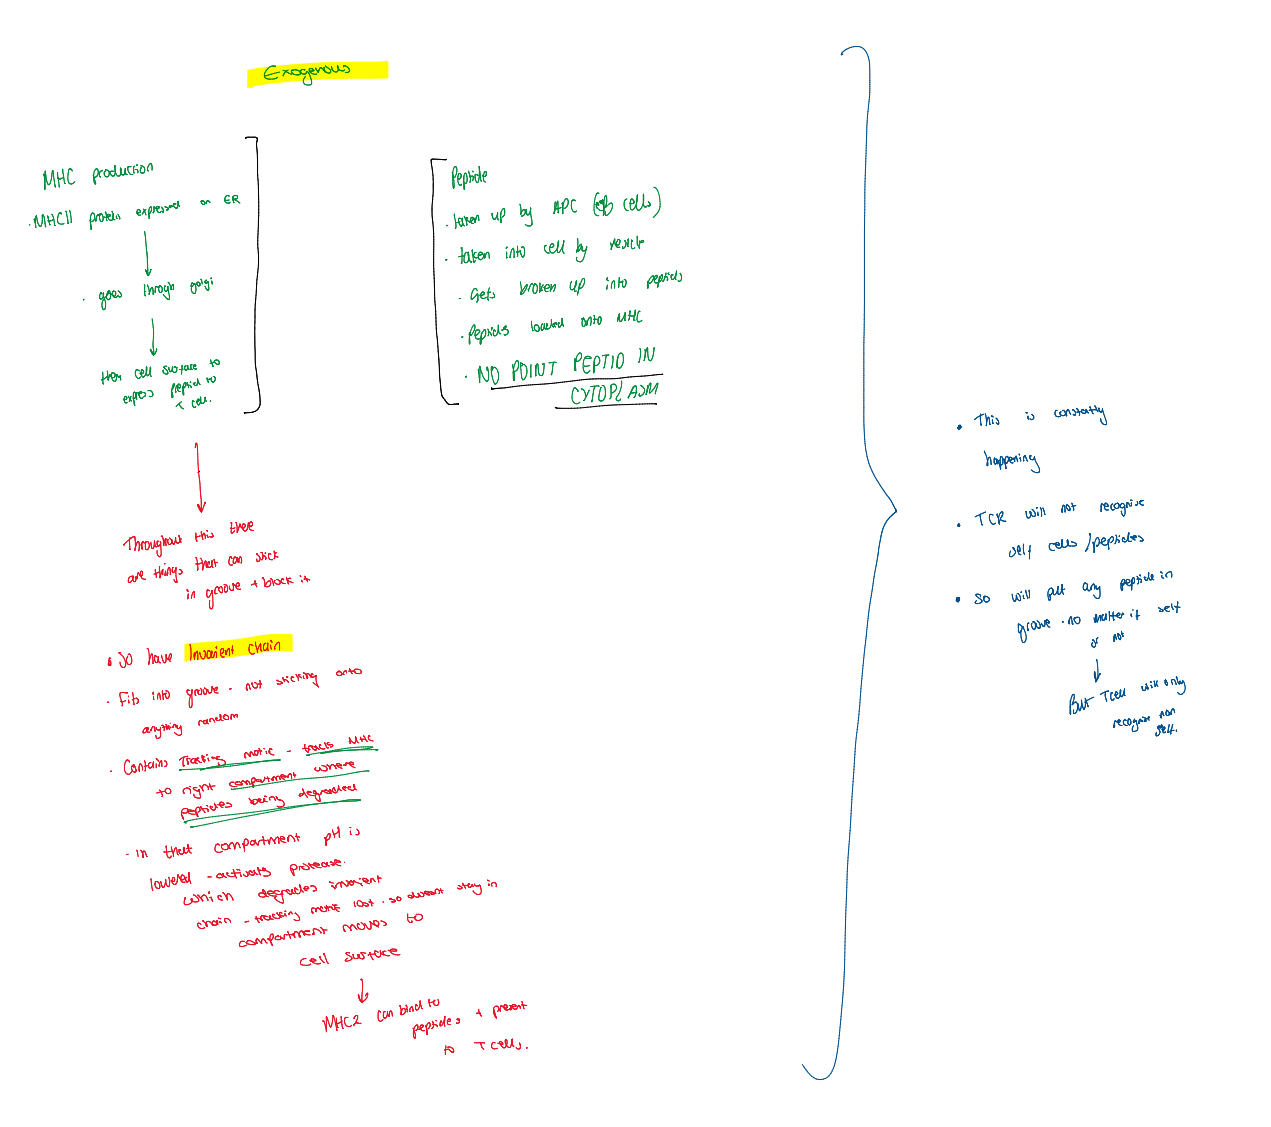 Exogenous
MHC production
· MHCII protein expressed on ER
· goes through golgi
then cell surface to
express peptid to
T cell.
Peptide
· taken up by APC ( B cells)
· taken into cell by vesicle
· Gets broken up into peptids
· Peptids loaded onto MHC
· NO POINT PEPTID IN
CYTOPLASM
Throughout this there
are things that can stick
in groove + block it
• so have Invarient chain
· Fits into groove - not sticking onto
anything random
· Contains Tracking motic - tracks MHC
to right compartment where
peptides being degraded
· in that compartment pH is
lowered - activats protease.
which degrades invarient
chain - tracking motic lost · so doesnt stay in
compartment moves to
cell surface
MHC2 can bind to
peptides + present
to T cells.
• This is constantly
happening
• TCR will not recognise
self cells/peptides
• so will put any peptide in
groove · no matter if self
or not
But Tcell will only
recognise non
self.